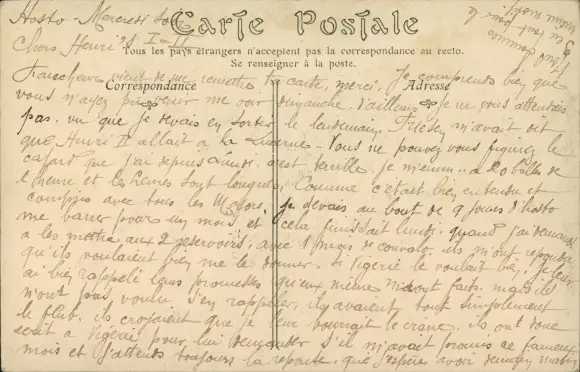 Hosto - Mercredi soir
Carte Postale
Chers Henri I et II
Tous les pays étrangers n'acceptent pas la correspondance au recto.
Se renseigner à la poste.
vient de me remettre ta carte, merci. Je comprends bien que
Correspondance
Adresse
vous n'ayez pu venir me voir dimanche. D'ailleurs je ne vous attendais
pas, vu que je devais en sortir le lendemain. m'avait dit
que Henri II allait à la Vous ne pouvez vous figurer le
cafard que j'ai depuis lundi. c'est terrible. je m'ennuie à 20 balles de
l'heure et les heures sont longues. Comme c'était bien entendu et
compris avec tous les Majors, je devais au bout de 9 jours d'hosto
me barrer pour un mois et cela finissait lundi. quand j'ai demandé
à les mettre aux 2 reservoirs, avec 1 mois de convalo, ils m'ont répondu
qu'ils voulaient bien me le donner. si Vigerie le voulait bien. Je leur
ai bien rappelé leurs promesses qu'eux même m'avait faits. mais ils
n'ont pas voulu s'en rappeler. ils avaient tout simplement
le ils croyaient que je leur bourrait le crane. ils ont donc
écrit à Vigerie pour lui demander s'il m'avait promis ce fameux
mois et j'attends toujours la réponse, que j'espère avoir demain matin